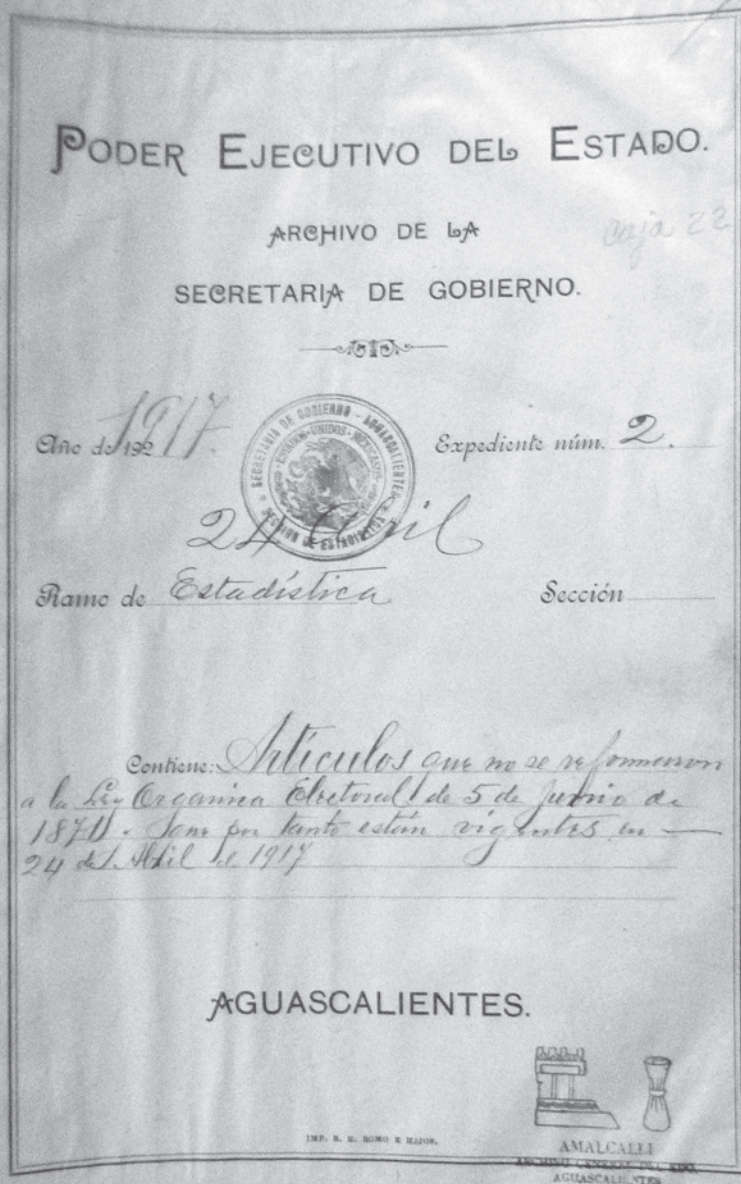 PODER EJECUTIVO DEL ESTADO.
ARCHIVO DE LA
caja 22
SECRETARIA DE GOBIERNO.
Año de 192 1917. Expediente núm. 2.
SECRETARIA DE GOBIERNO - AGUASCALIENTES
ESTADOS-UNIDOS-MEXICANOS
SECCION DE ESTADISTICA
24 Abril
Ramo de Estadística Sección
Contiene: Artículos que no se reformaron
a la Ley Organica Electoral de 5 de Junio de
1871 por tanto están vigentes en
24 del Abril de 1917
AGUASCALIENTES.
IMP. R. R. ROMO E HIJOS.
AMALCALLI
ARCHIVO GENERAL DEL EDO.
AGUASCALIENTES